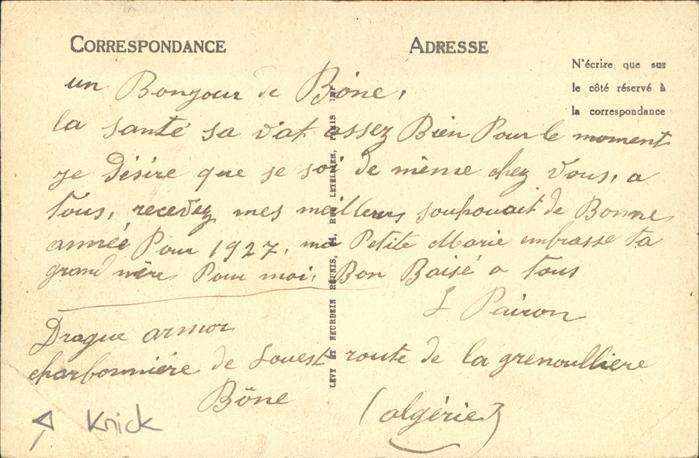 CORRESPONDANCE
ADRESSE
N'écrire que sur
le côté réservé à
la correspondance
un Bonjour de Bône,
la santé sa vat assez Bien Pour le moment
je Désire que se soi de même chez Vous, a
tous, recevez mes meilleurs souhouait de Bonne
année Pour 1927, ma Petite Marie embrasse ta
grand mère Pour moi, Bon Baisé a tous
L Pairon
Drague armor
charbonnière de Louest route de la grenoulliere
Bône (algérie)
Knick
LEVY ET NEURDEIN RÉUNIS, 44, RUE LETELLIER, PARIS IMP